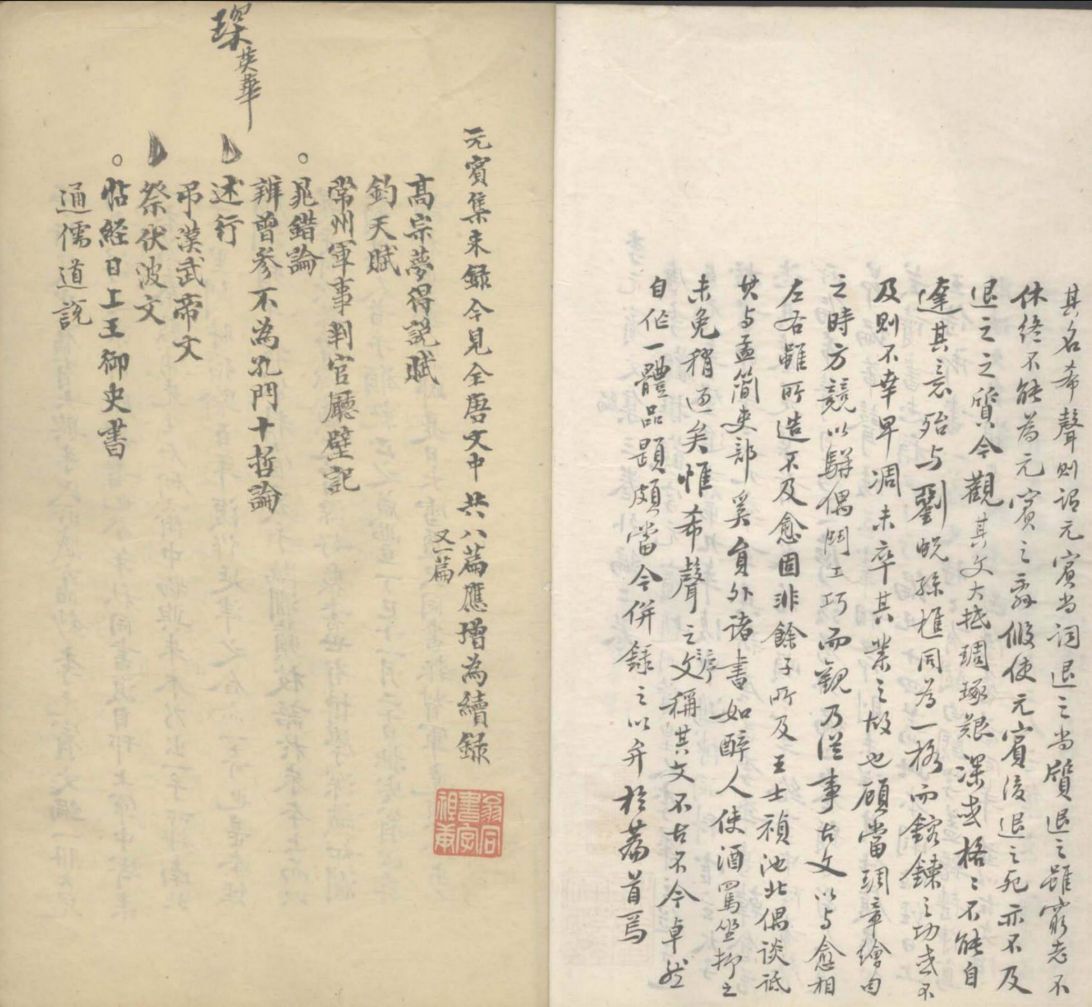 其名希聲則謂元賓尚詞退之尚質退之雖窮老不
休終不能為元賓之辭假使元賓後退之死亦不及
退之之質今觀其文大抵琱琢艱深或格〻不能自
達其意殆与劉蛻孫樵同為一格而鎔鍊之功或不
及則不幸早凋未卒其業之故也顧當琱章繪句
之時方競以駢偶鬥工巧而觀乃從事古文以与愈相
左右雖所造不及愈固非餘子所及王士禎池北偶談詆
其与孟簡吏部奚員外諸書如醉人使酒罵坐抑之
未免稍過矣惟希聲之序稱其文不古不今卓然
自作一體品題頗當今併録之以弁於篇首焉
元賓集未録今見全唐文中共八篇應增為續録
又一篇
高宗夢得説賦
鈞天賦
常州軍事判官廳壁記
晁錯論
辨曾參不為孔門十哲論
述行
弔漢武帝文
祭伏波文
帖經日上王御史書
通儒道説
英華
翁同
書字
祖庚